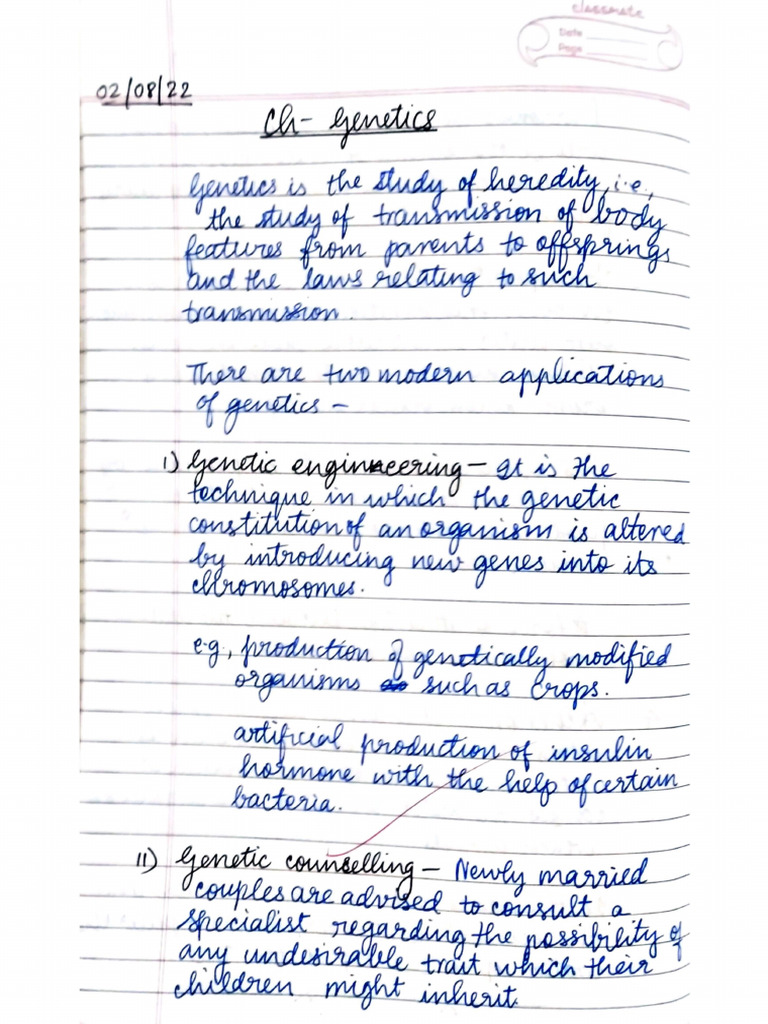 classmate
Date
Page
02/08/22
Ch- Genetics
Genetics is the study of heredity, i.e.,
the study of transmission of body
features from parents to offsprings
and the laws relating to such
transmission.
There are two modern applications
of genetics –
i) Genetic engineering – It is the
technique in which the genetic
constitution of an organism is altered
by introducing new genes into its
chromosomes.
e.g., production of genetically modified
organisms such as crops.
artificial production of insulin
hormone with the help of certain
bacteria.
ii) Genetic counselling – Newly married
couples are advised to consult a
specialist regarding the possibility of
any undesirable trait which their
children might inherit.